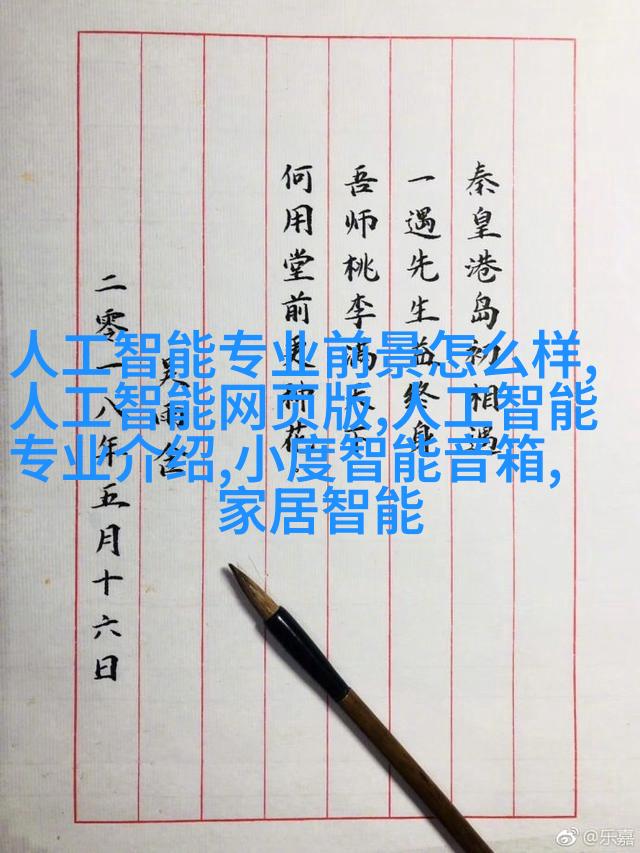 秦皇港岛初相遇
一遇先生益终身
吾师桃李满天下
何用堂前更种花
吴雨含
二零一八年五月十六日
人工智能专业前景怎么样,
人工智能网页版,人工智能
专业介绍,小度智能音箱,
家居智能
@乐嘉